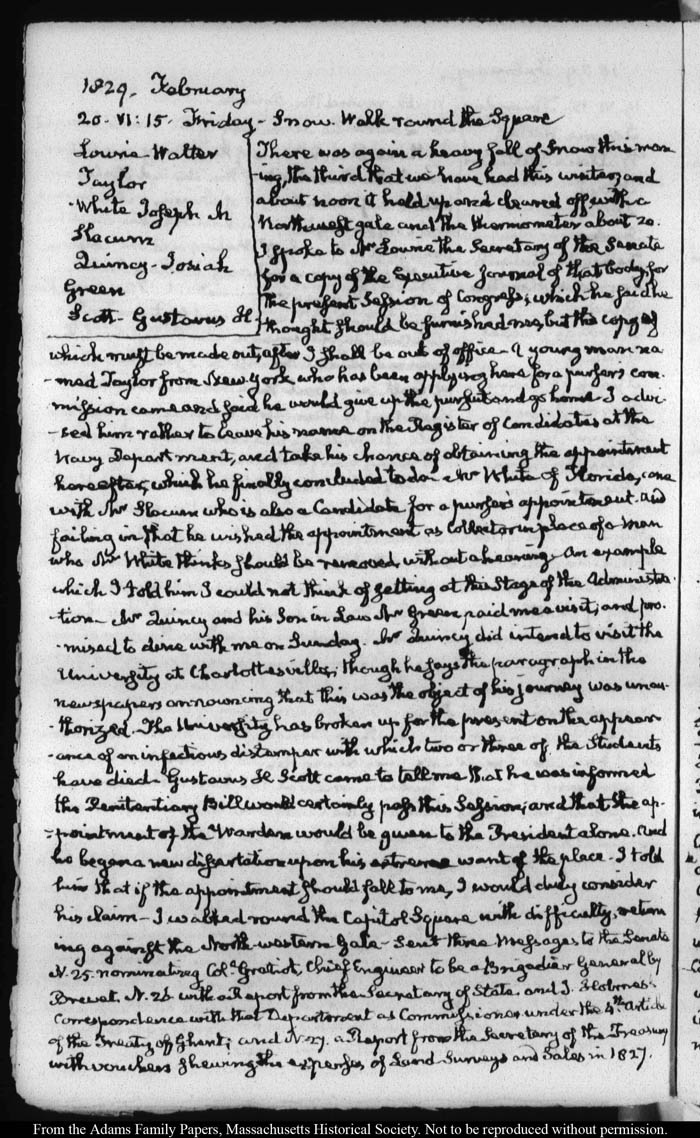 1829. February
20. VI:15. Friday - Snow. Walk round the Square
Lowrie - Walter
Taylor
White Joseph M
Slacum
Quincy - Josiah
Green
Scott - Gustavus H.
There was again a heavy fall of Snow this morn
-ing, the third that we have had this winter; and
about noon it held up and cleared off with a
Northwest gale and the thermometer about 20.
I spoke to Mr Lowrie the Secretary of the Senate
for a copy of the Executive Journal of that body, for
the present Session of Congress; which he said he
thought should be furnished me, but the copy of
which must be made out, after I shall be out of office - A young man na
-med Taylor from New York who has been applying here for a purser's com
mission came and said he would give up the pursuit and go home. I advi
-sed him rather to leave his name on the Register of Candidates at the
Navy Department, and take his chance of obtaining the appointment
hereafter, which he finally concluded to do - Mr White of Florida, came
with Mr Slacum who is also a Candidate for a purser's appointment. and
failing in that he wished the appointment as Collector in place of a man
who Mr White thinks should be removed, without a hearing - An example
which I told him I could not think of setting at this Stage of the Administra
-tion - Mr Quincy and his Son in Law Mr Green, paid me a visit, and pro
-mised to dine with me on Sunday. Mr Quincy did intend to visit the
University at Charlottesville; though he says the paragraph in the
newspapers announcing that this was the object of his journey was unau
-thorized. The University has broken up for the present on the appear
-ance of an infectious distemper with which two or three of the Students
have died - Gustavus H Scott came to tell me that he was informed
the Penitentiary Bill would certainly pass this Session; and that the ap
-pointment of the Warden would be given to the President alone. and
he began a new dissertation upon his extreme want of the place - I told
him that if the appointment should fall to me, I would duly consider
his claim - I walked round the Capitol Square with difficulty, return
ing against the North-western Gale - Sent three Messages to the Senate
N. 25. nominating Col. Gratiot, Chief Engineer to be a Brigadier General by
Brevet. N. 26 with a Report from the Secretary of State. and J. Holmes's
Correspondence with that Department as Commissioner under the 4th Article
of the Treaty of Ghent; and N. 27. a Report from the Secretary of the Treasury
with vouchers shewing the expenses of Land Surveys and Sales in 1827.
From the Adams Family Papers, Massachusetts Historical Society. Not to be reproduced without permission.